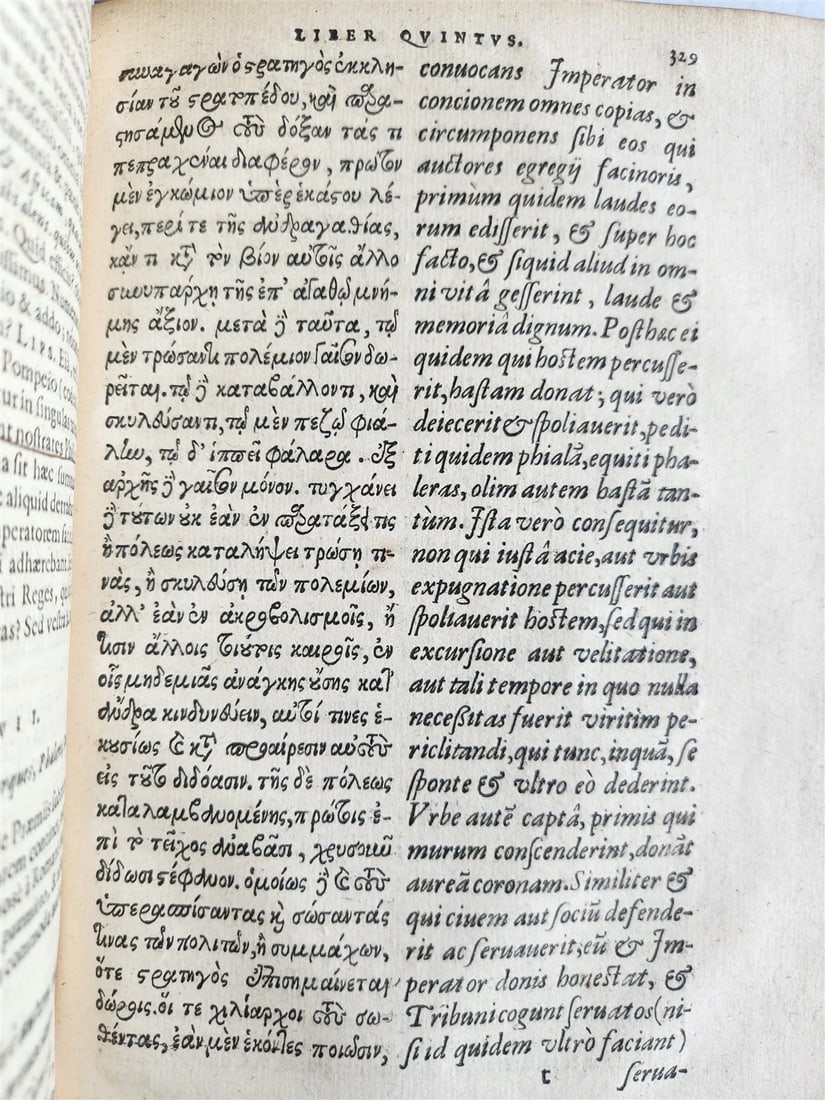 Pompeio
in singula
nostrates
a sit hæc
aliquid
adhærebant
Reges,
Sed
LIBER QVINTVS.
329
συναγαγὼν ὁ στρατηγὸς ἐκκλη-
σίαν τοῦ στρατοπέδου, καὶ παρα-
στησάμενος τοὺς δόξαντάς τι
πεπραχέναι διαφέρον, πρῶτον
μὲν ἐγκώμιον ὑπὲρ ἑκάστου λέ-
γει, περί τε τῆς ἀνδραγαθίας,
κἄν τι κατὰ τὸν βίον αὐτοῖς ἄλλο
συνυπάρχῃ τῆς ἐπ' ἀγαθῷ μνή-
μης ἄξιον. μετὰ δὲ ταῦτα, τῷ
μὲν τρώσαντι πολέμιον γαῖσον δω-
ρεῖται. τῷ δὲ καταβάλλοντι, καὶ
σκυλεύσαντι, τῷ μὲν πεζῷ φιά-
λην, τῷ δ' ἱππεῖ φάλαρα. ἐξ
ἀρχῆς δὲ γαῖσον μόνον. τυγχάνει
δὲ τούτων οὐκ ἐὰν ἐν παρατάξει τις
ἢ πόλεως καταλήψει τρώσῃ τι-
νὰς, ἢ σκυλεύσῃ τῶν πολεμίων,
ἀλλ' ἐὰν ἐν ἀκροβολισμοῖς, ἤ
τισιν ἄλλοις τοιούτοις καιροῖς, ἐν
οἷς μηδεμιᾶς ἀνάγκης οὔσης κατ'
ἄνδρα κινδυνεύειν, αὐτοί τινες ἑ-
κουσίως καὶ κατὰ προαίρεσιν αὑτοὺς
εἰς τοῦτο διδόασιν. τῆς δὲ πόλεως
καταλαμβανομένης, πρώτοις ἐ-
πὶ τὸ τεῖχος ἀναβᾶσι, χρυσοῦν
δίδωσι στέφανον. ὁμοίως δὲ καὶ τοὺς
ὑπερασπίσαντας καὶ σώσαντάς
τινας τῶν πολιτῶν, ἢ συμμάχων,
ὅτε στρατηγὸς ἐπισημαίνεται
δώροις. οἵ τε χιλίαρχοι τοὺς σω-
θέντας, ἐὰν μὲν ἑκόντες ποιῶσιν,
conuocans Imperator in
concionem omnes copias, &
circumponens sibi eos qui
auctores egregij facinoris,
primùm quidem laudes eo-
rum edisserit, & super hoc
facto, & siquid aliud in om-
ni vitâ gesserint, laude &
memoriâ dignum. Post hæc ei
quidem qui hostem percusse-
rit, hastam donat; qui verò
deiecerit & spoliauerit, pedi-
ti quidem phialã, equiti pha-
leras, olim autem hastã tan-
tùm. Ista verò consequitur,
non qui iustâ acie, aut vrbis
expugnatione percusserit aut
spoliauerit hostem, sed qui in
excursione aut velitatione,
aut tali tempore in quo nulla
necessitas fuerit viritim pe-
riclitandi, qui tunc, inquã, se
sponte & vltro eò dederint.
Vrbe autẽ captâ, primis qui
murum conscenderint, donãt
aureã coronam. Similiter &
qui ciuem aut sociũ defende-
rit ac seruauerit; eũ & Im-
perator donis honestat, &
Tribuni cogunt seruatos (ni-
si id quidem vltrò faciant)
t
serua-